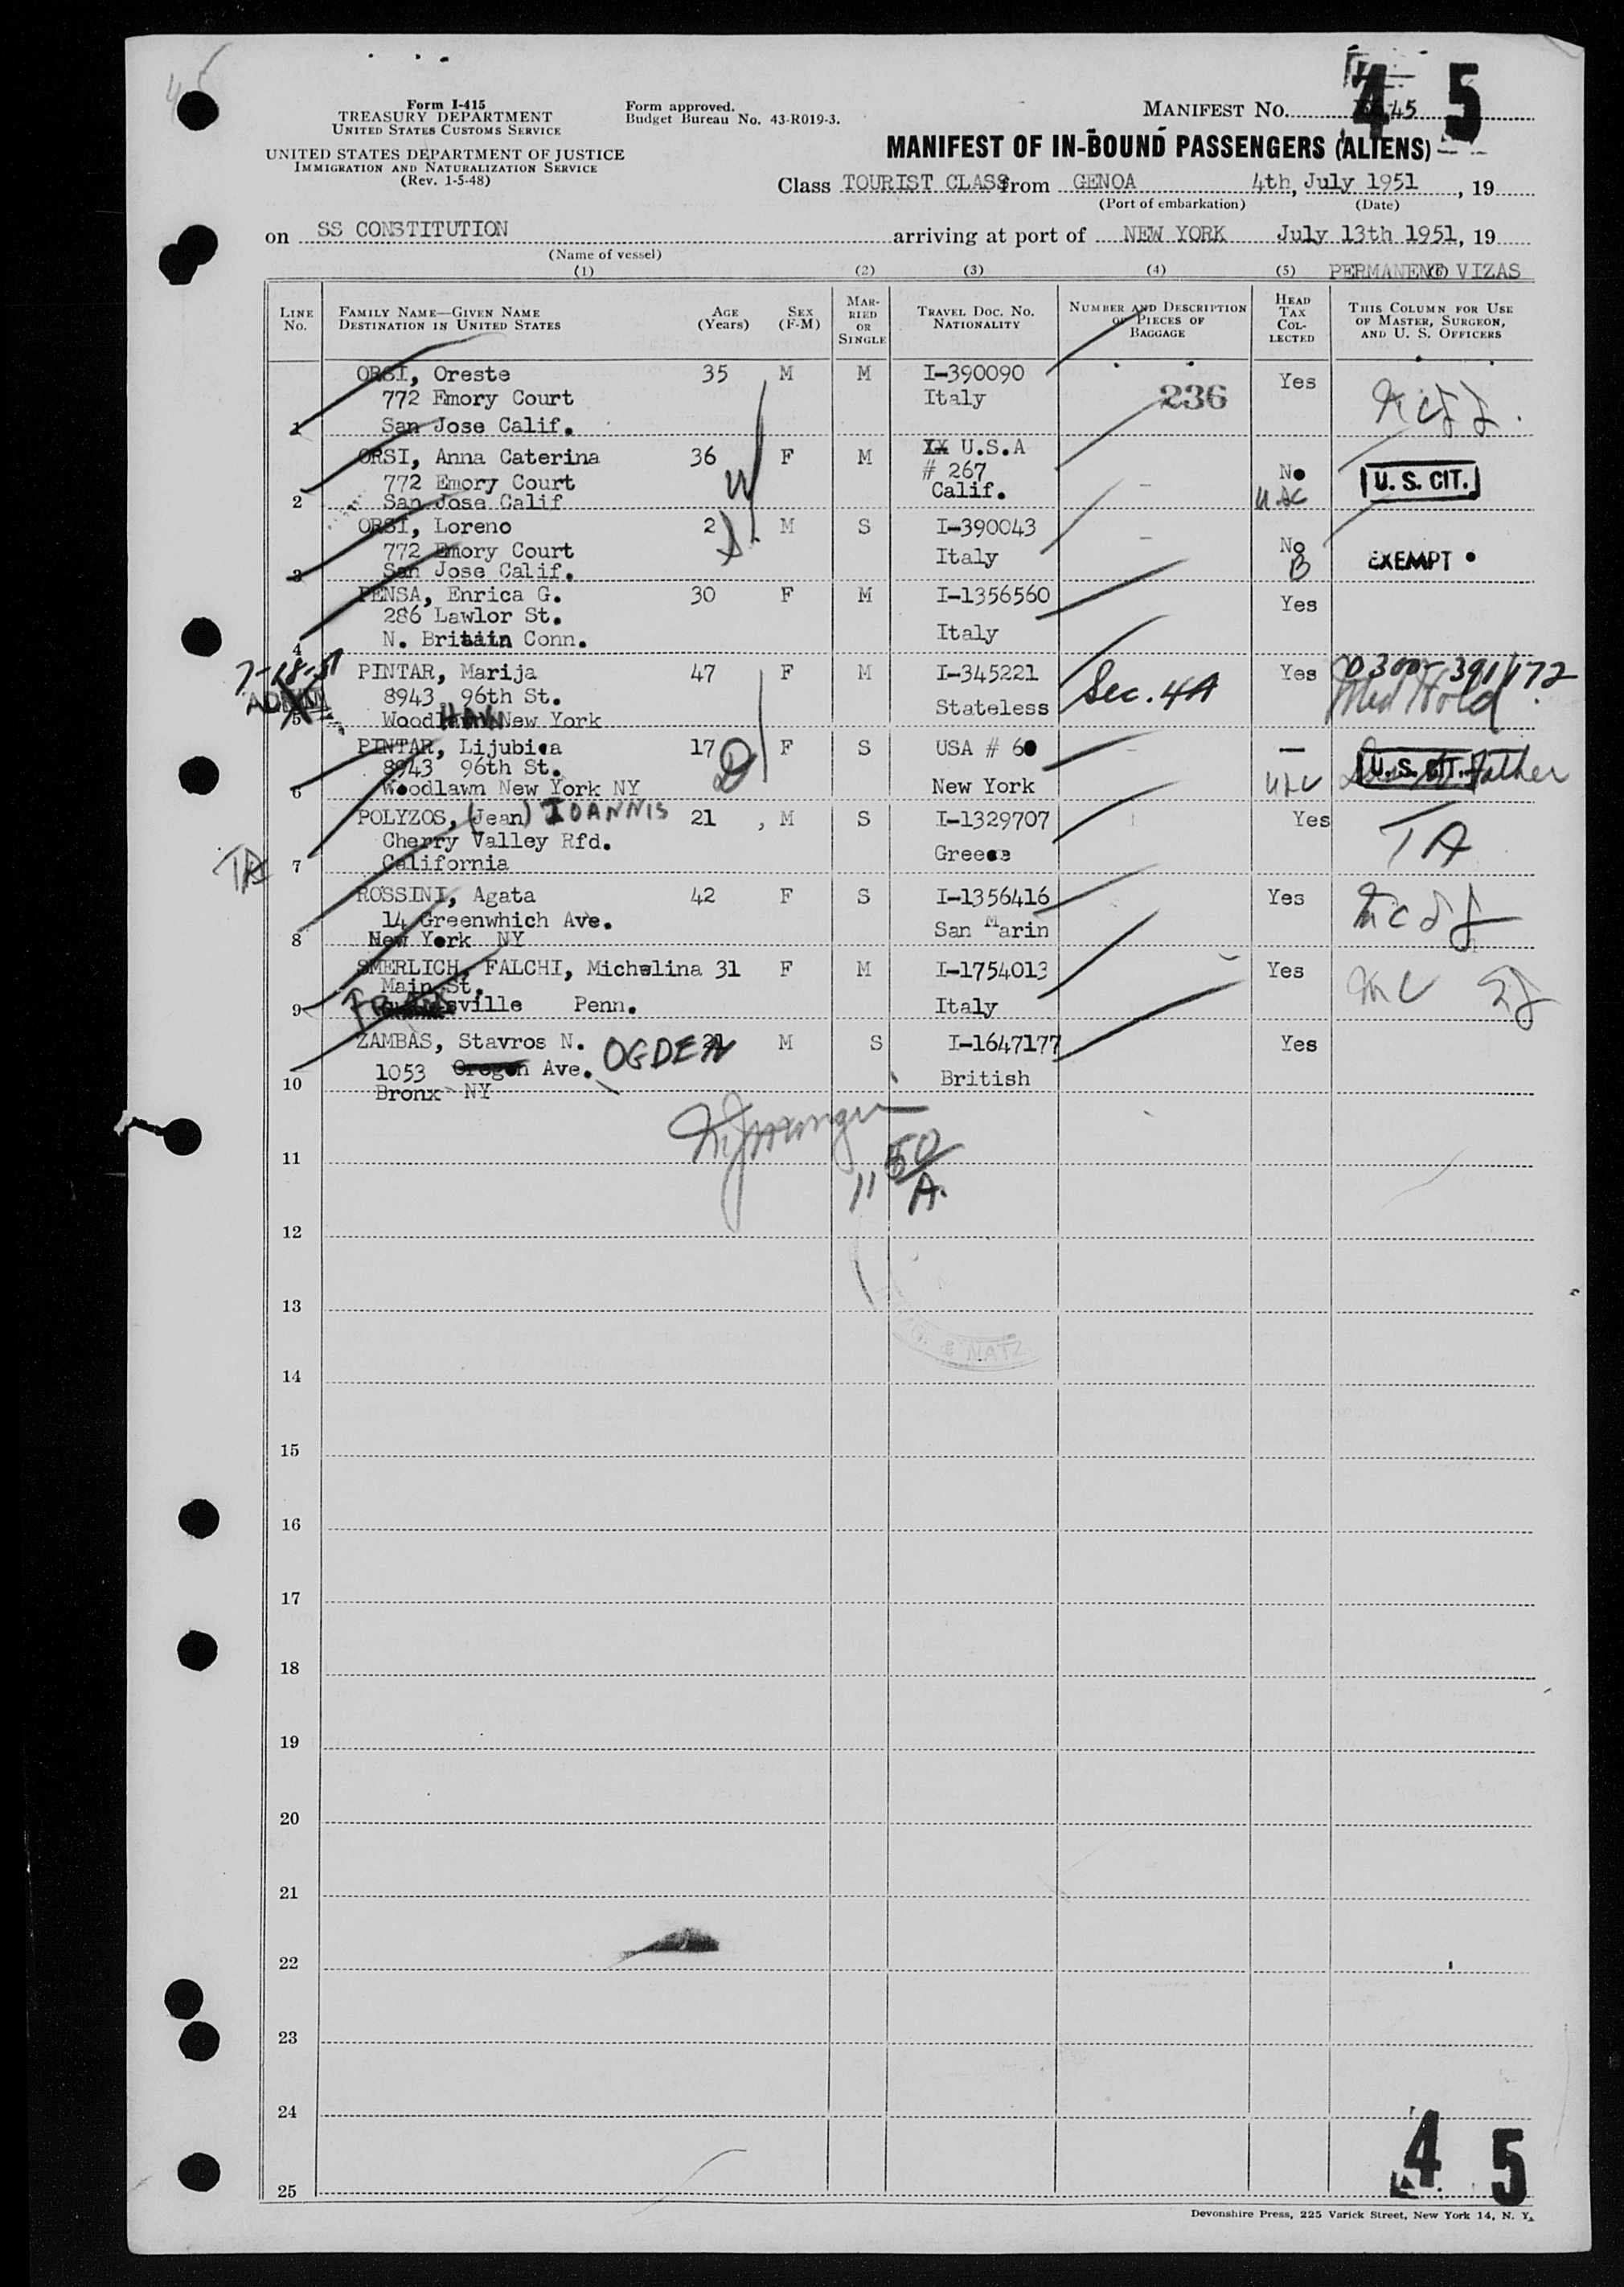 45
Form I-415
TREASURY DEPARTMENT
UNITED STATES CUSTOMS SERVICE
UNITED STATES DEPARTMENT OF JUSTICE
IMMIGRATION AND NATURALIZATION SERVICE
(Rev. 1-5-48)
Form approved.
Budget Bureau No. 43-R019-3.
MANIFEST No. 45
4 5
MANIFEST OF IN-BOUND PASSENGERS (ALIENS)
Class TOURIST CLASS from GENOA 4th, July 1951, 19
(Port of embarkation) (Date)
on SS CONSTITUTION arriving at port of NEW YORK July 13th 1951, 19
(Name of vessel)
(1) (2) (3) (4) (5) PERMANENT VIZAS
LINE No. FAMILY NAME—GIVEN NAME DESTINATION IN UNITED STATES AGE (Years) SEX (F-M) MARRIED OR SINGLE TRAVEL DOC. NO. NATIONALITY NUMBER AND DESCRIPTION OF PIECES OF BAGGAGE HEAD TAX COLLECTED THIS COLUMN FOR USE OF MASTER, SURGEON, AND U. S. OFFICERS
ORSI, Oreste 35 M M I-390090 Yes
772 Emory Court Italy 236
1 San Jose Calif.
ORSI, Anna Caterina 36 F M U.S.A
772 Emory Court # 267 No U. S. CIT.
2 San Jose Calif Calif. USC
ORSI, Loreno 2 M S I-390043 No
772 Emory Court Italy B EXEMPT
3 San Jose Calif.
PENSA, Enrica G. 30 F M I-1356560 Yes
286 Lawlor St.
4 N. Britain Conn. Italy
7-18-51 PINTAR, Marija 47 F M I-345221 Yes 0300-391172
8943 96th St. Stateless Sec. 4A Med Hold
5 Woodhaven New York
PINTAR, Lijubica 17 F S USA # 60 — U.S. CIT. Father
8943 96th St.
6 Woodlawn New York NY New York USC
POLYZOS, (Jean) IOANNIS 21, M S I-1329707 Yes TA
Cherry Valley Rfd. Greece
TA 7 California
ROSSINI, Agata 42 F S I-1356416 Yes
14 Greenwhich Ave. San Marin
8 New York NY
SMERLICH, FALCHI, Michelina 31 F M I-1754013 Yes
Main St.
9 sville Penn. Italy
ZAMBAS, Stavros N. 21 M S I-1647177 Yes
1053 Oregon Ave. OGDEN British
10 Bronx NY
11
12
13
& NATZ
14
15
16
17
18
19
20
21
22
23
24
25
4 5
Devonshire Press, 225 Varick Street, New York 14, N. Y.